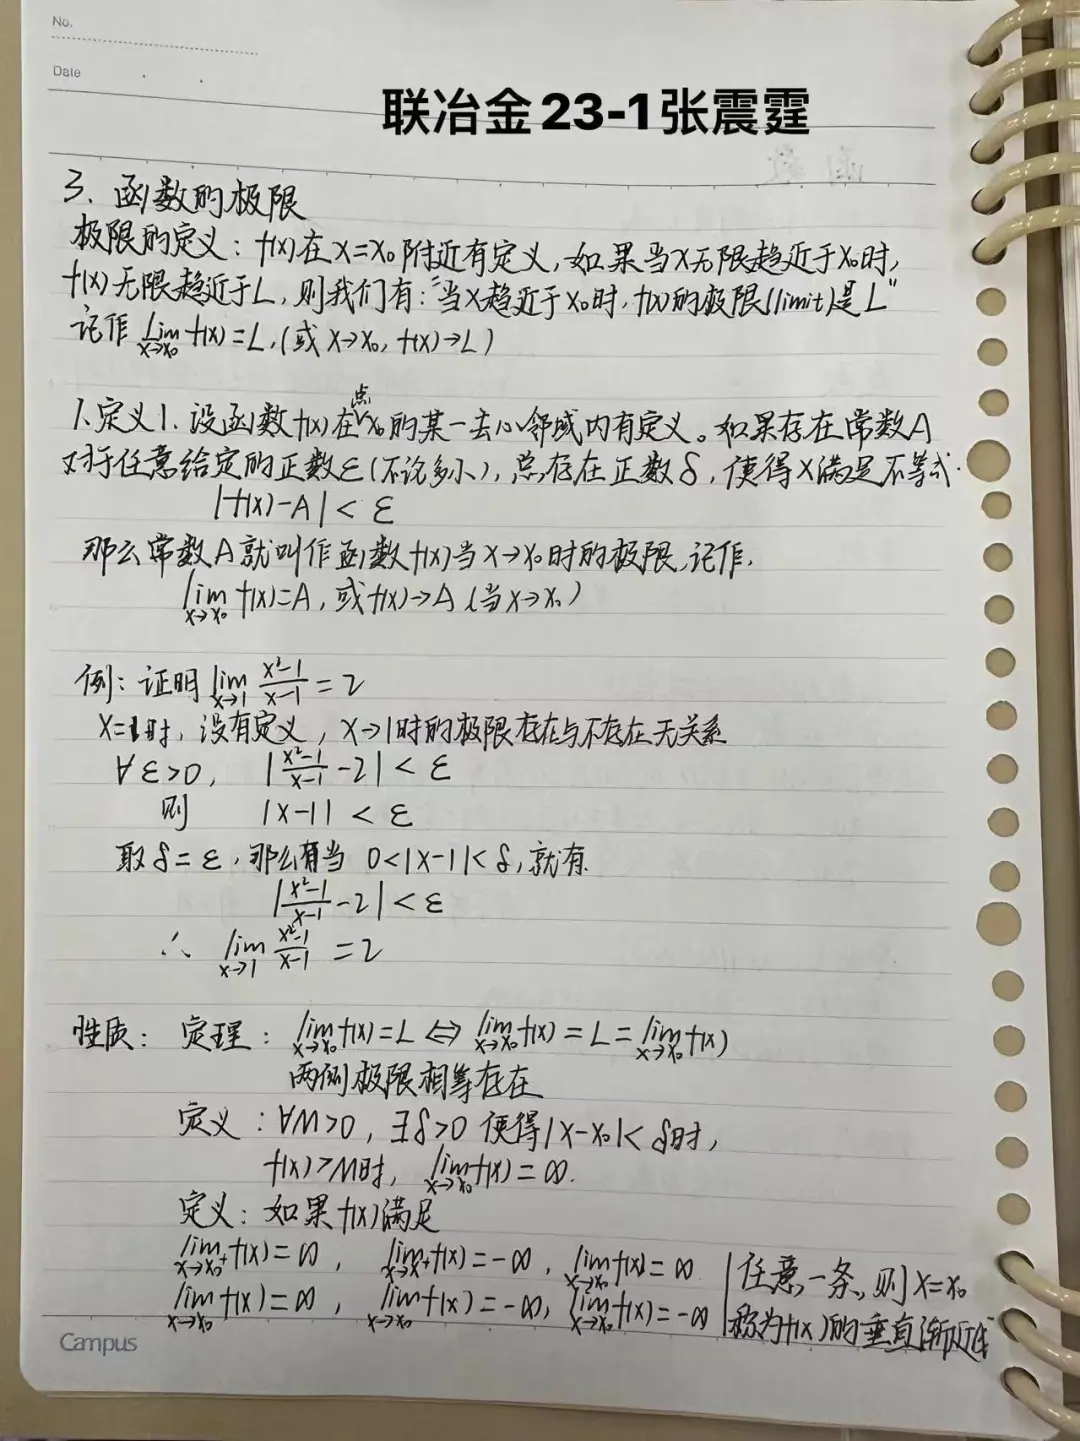 No.
Date
联冶金23-1张震霆
3. 函数的极限
极限的定义: f(x)在x=x₀附近有定义,如果当x无限趋近于x₀时,
f(x)无限趋近于L, 则我们有:"当x趋近于x₀时, f(x)的极限(limit)是L"
记作 lim_{x→x₀} f(x)=L,(或x→x₀, f(x)→L)
1.定义1. 设函数f(x)在点x₀的某一去心邻域内有定义。如果存在常数A
对于任意给定的正数ε(不论多小),总存在正数δ,使得x满足不等式.
|f(x)-A|<ε
那么常数A就叫作函数f(x)当x→x₀时的极限,记作.
lim_{x→x₀} f(x)=A, 或f(x)→A (当x→x₀)
例: 证明 lim_{x→1} (x²-1)/(x-1) = 2
x=1时, 没有定义, x→1时的极限存在与不存在无关系
∀ε>0, |(x²-1)/(x-1) -2|<ε
则 |x-1|<ε
取δ=ε,那么有当 0<|x-1|<δ,就有
|(x²-1)/(x-1) -2|<ε
∴ lim_{x→1} (x²-1)/(x-1) = 2
性质: 定理: lim_{x→x₀} f(x)=L ⇔ lim_{x→x₀} f(x)=L=lim_{x→x₀} f(x)
两侧极限相等存在
定义: ∀M>0, ∃δ>0 使得|x-x₀|<δ时,
f(x)>M时, lim_{x→x₀} f(x)=∞.
定义: 如果f(x)满足
lim_{x→x₀⁺} f(x)=∞, lim_{x→x₀⁺} f(x)=-∞, lim_{x→x₀} f(x)=∞ | 任意一条,则x=x₀
lim_{x→x₀} f(x)=∞, lim_{x→x₀} f(x)=-∞, lim_{x→x₀} f(x)=-∞ | 称为f(x)的垂直渐近线
Campus